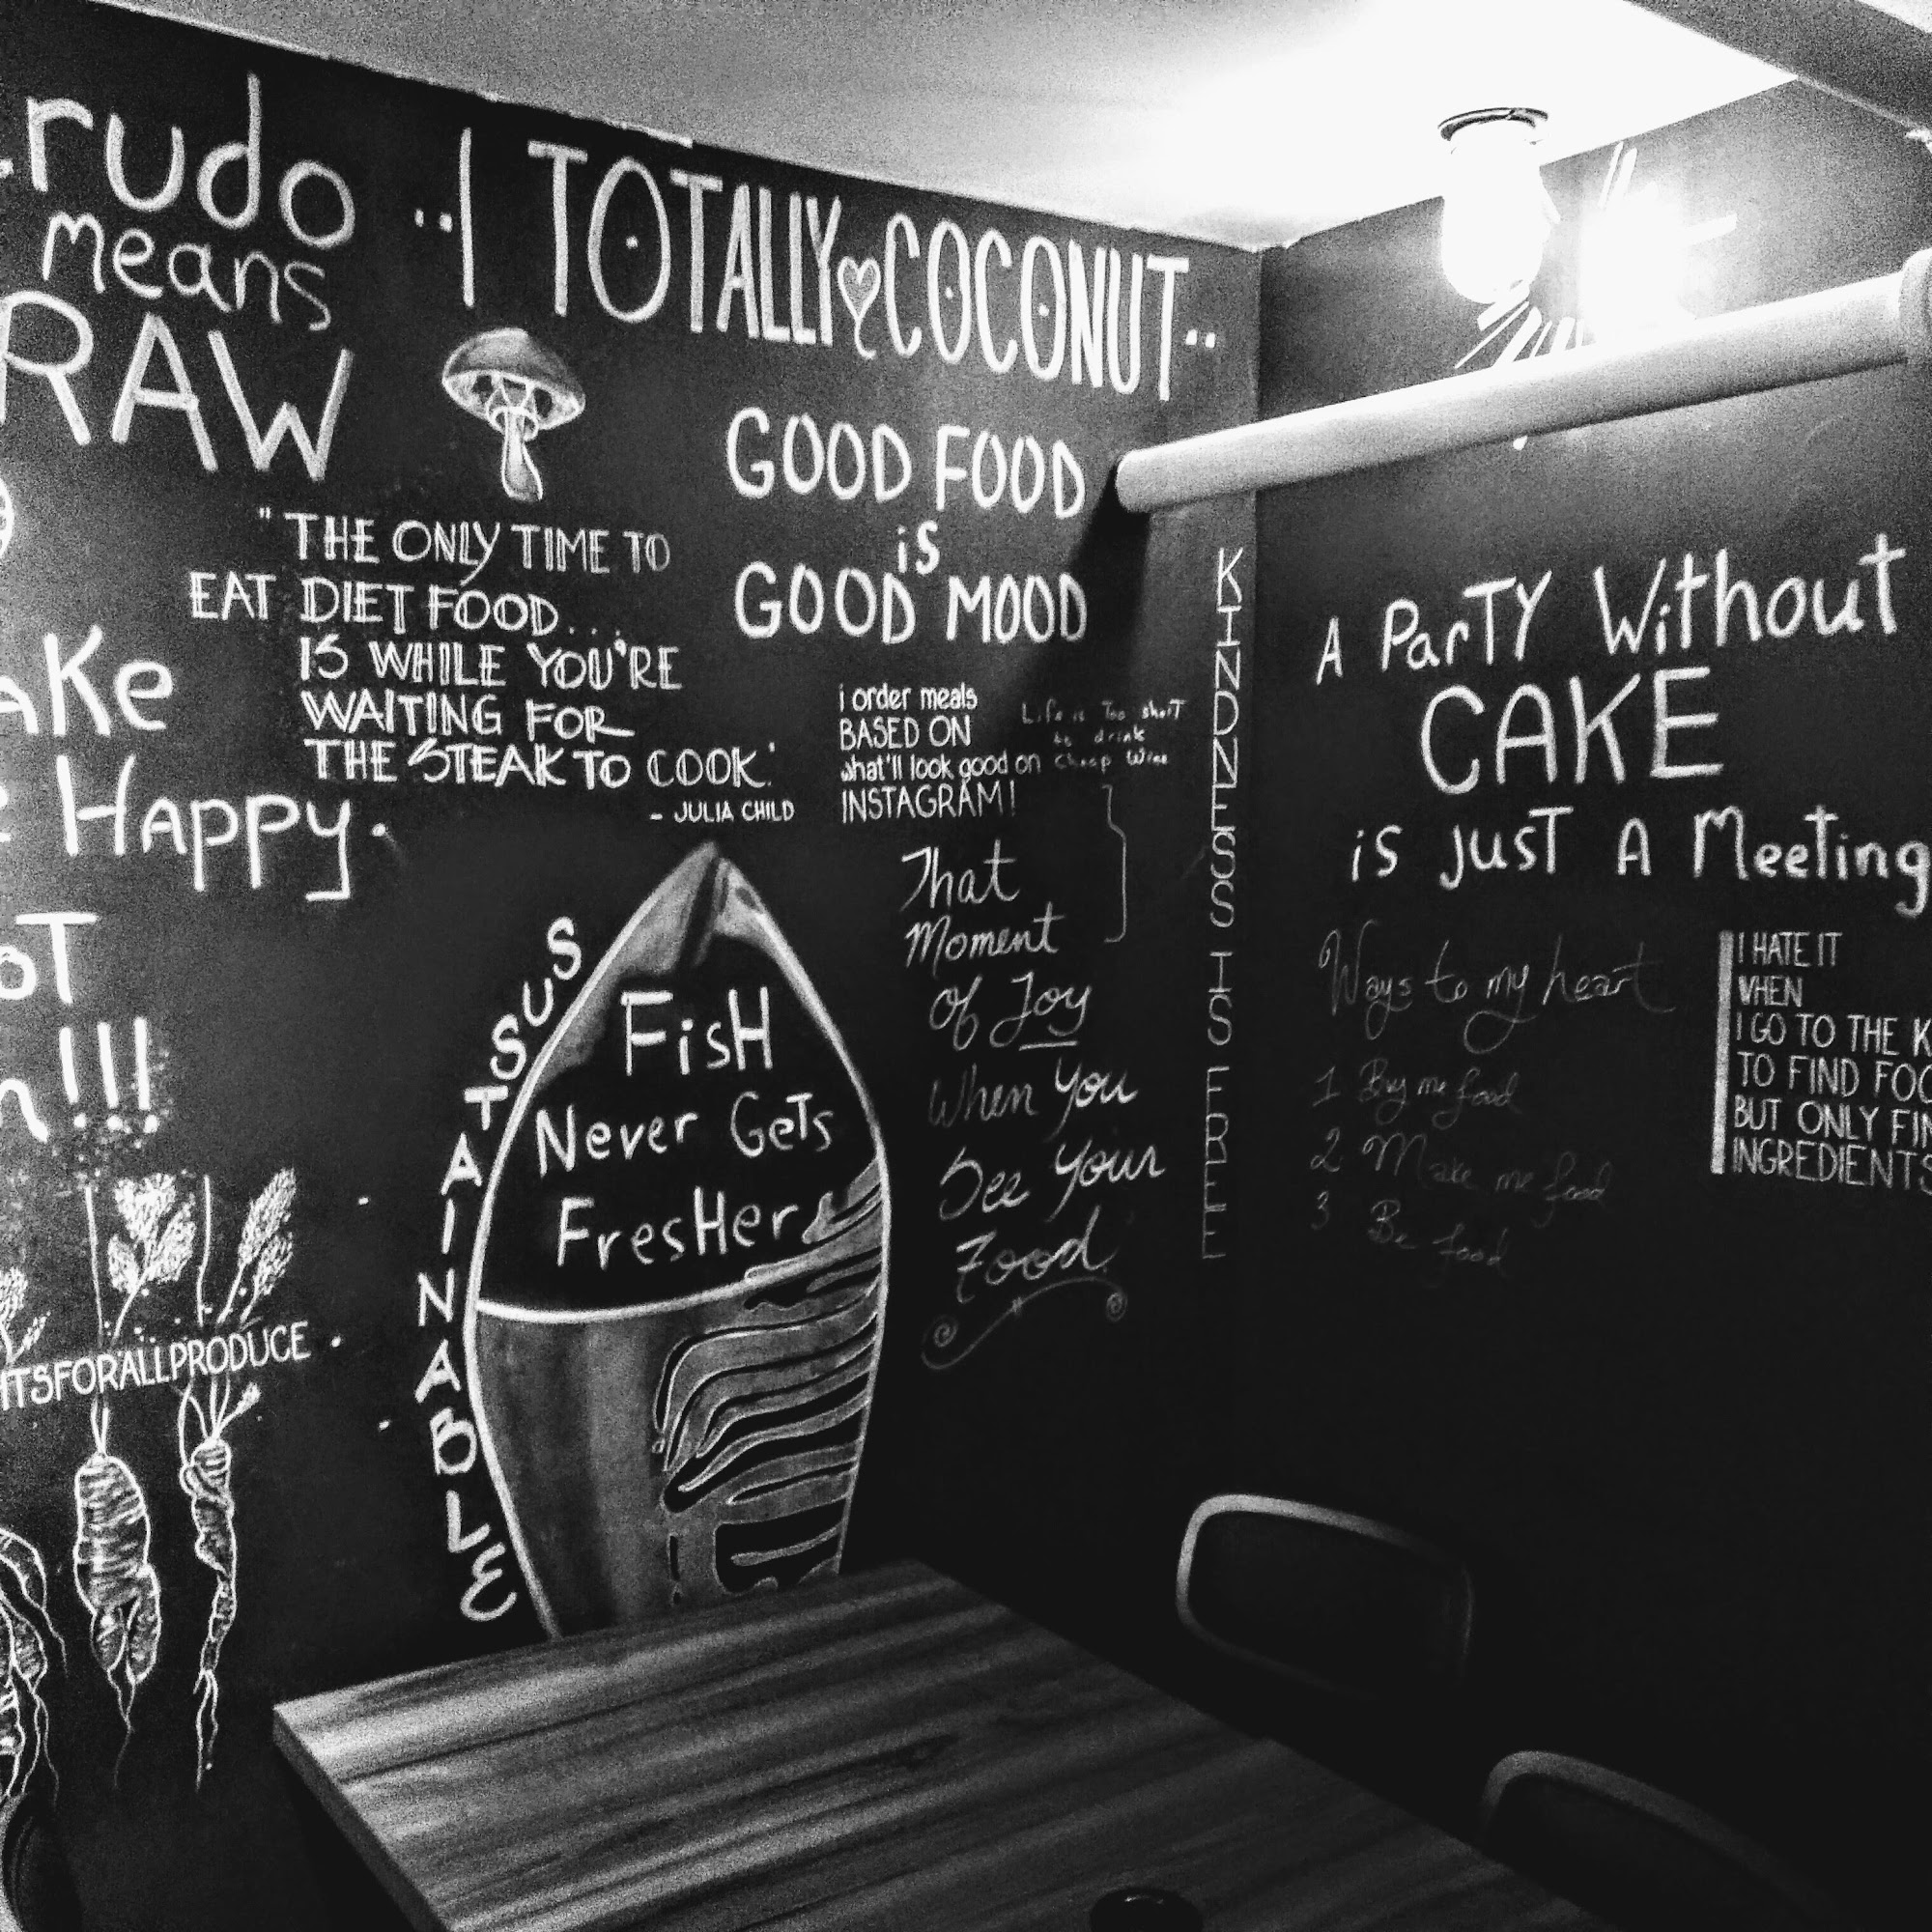 rudo
means
RAW
ake
Happy.
oT
n!!!
ITSFORALLPRODUCE
..I TOTALLY COCONUT..
"THE ONLY TIME TO
EAT DIET FOOD...
IS WHILE YOU'RE
WAITING FOR
THE STEAK TO COOK."
- JULIA CHILD
GOOD FOOD
iS
GOOD MOOD
i order meals
BASED ON
what'll look good on
INSTAGRAM!
Life is Too shorT
to drink
Cheap Wine
SUSTAINABLE
FisH
Never GeTs
FresHer
That
Moment
of Joy
When You
See Your
Food
KINDNESS IS FREE
A ParTY Without
CAKE
is jusT A Meeting
Ways to my heart
1 Buy me food
2 Make me food
3 Be food
I HATE IT
WHEN
I GO TO THE K
TO FIND FOO
BUT ONLY FIN
INGREDIENTS